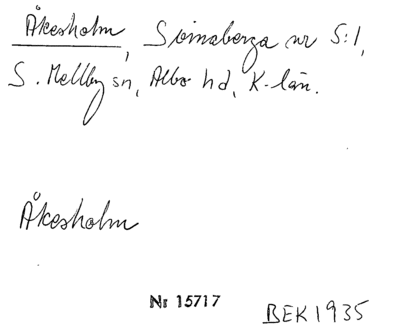 Åkesholm, Svinaberga nr 5:1,
S. Mellby sn, Albo hd, K-län.
Åkesholm
Nr 15717
BEK 1935